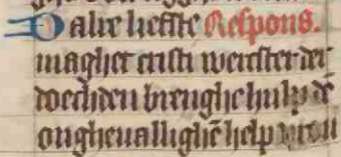 Dalre liefste Respons.
maghet cristi weerster der
doechden brenghe hulp dē
ongheuallighē help